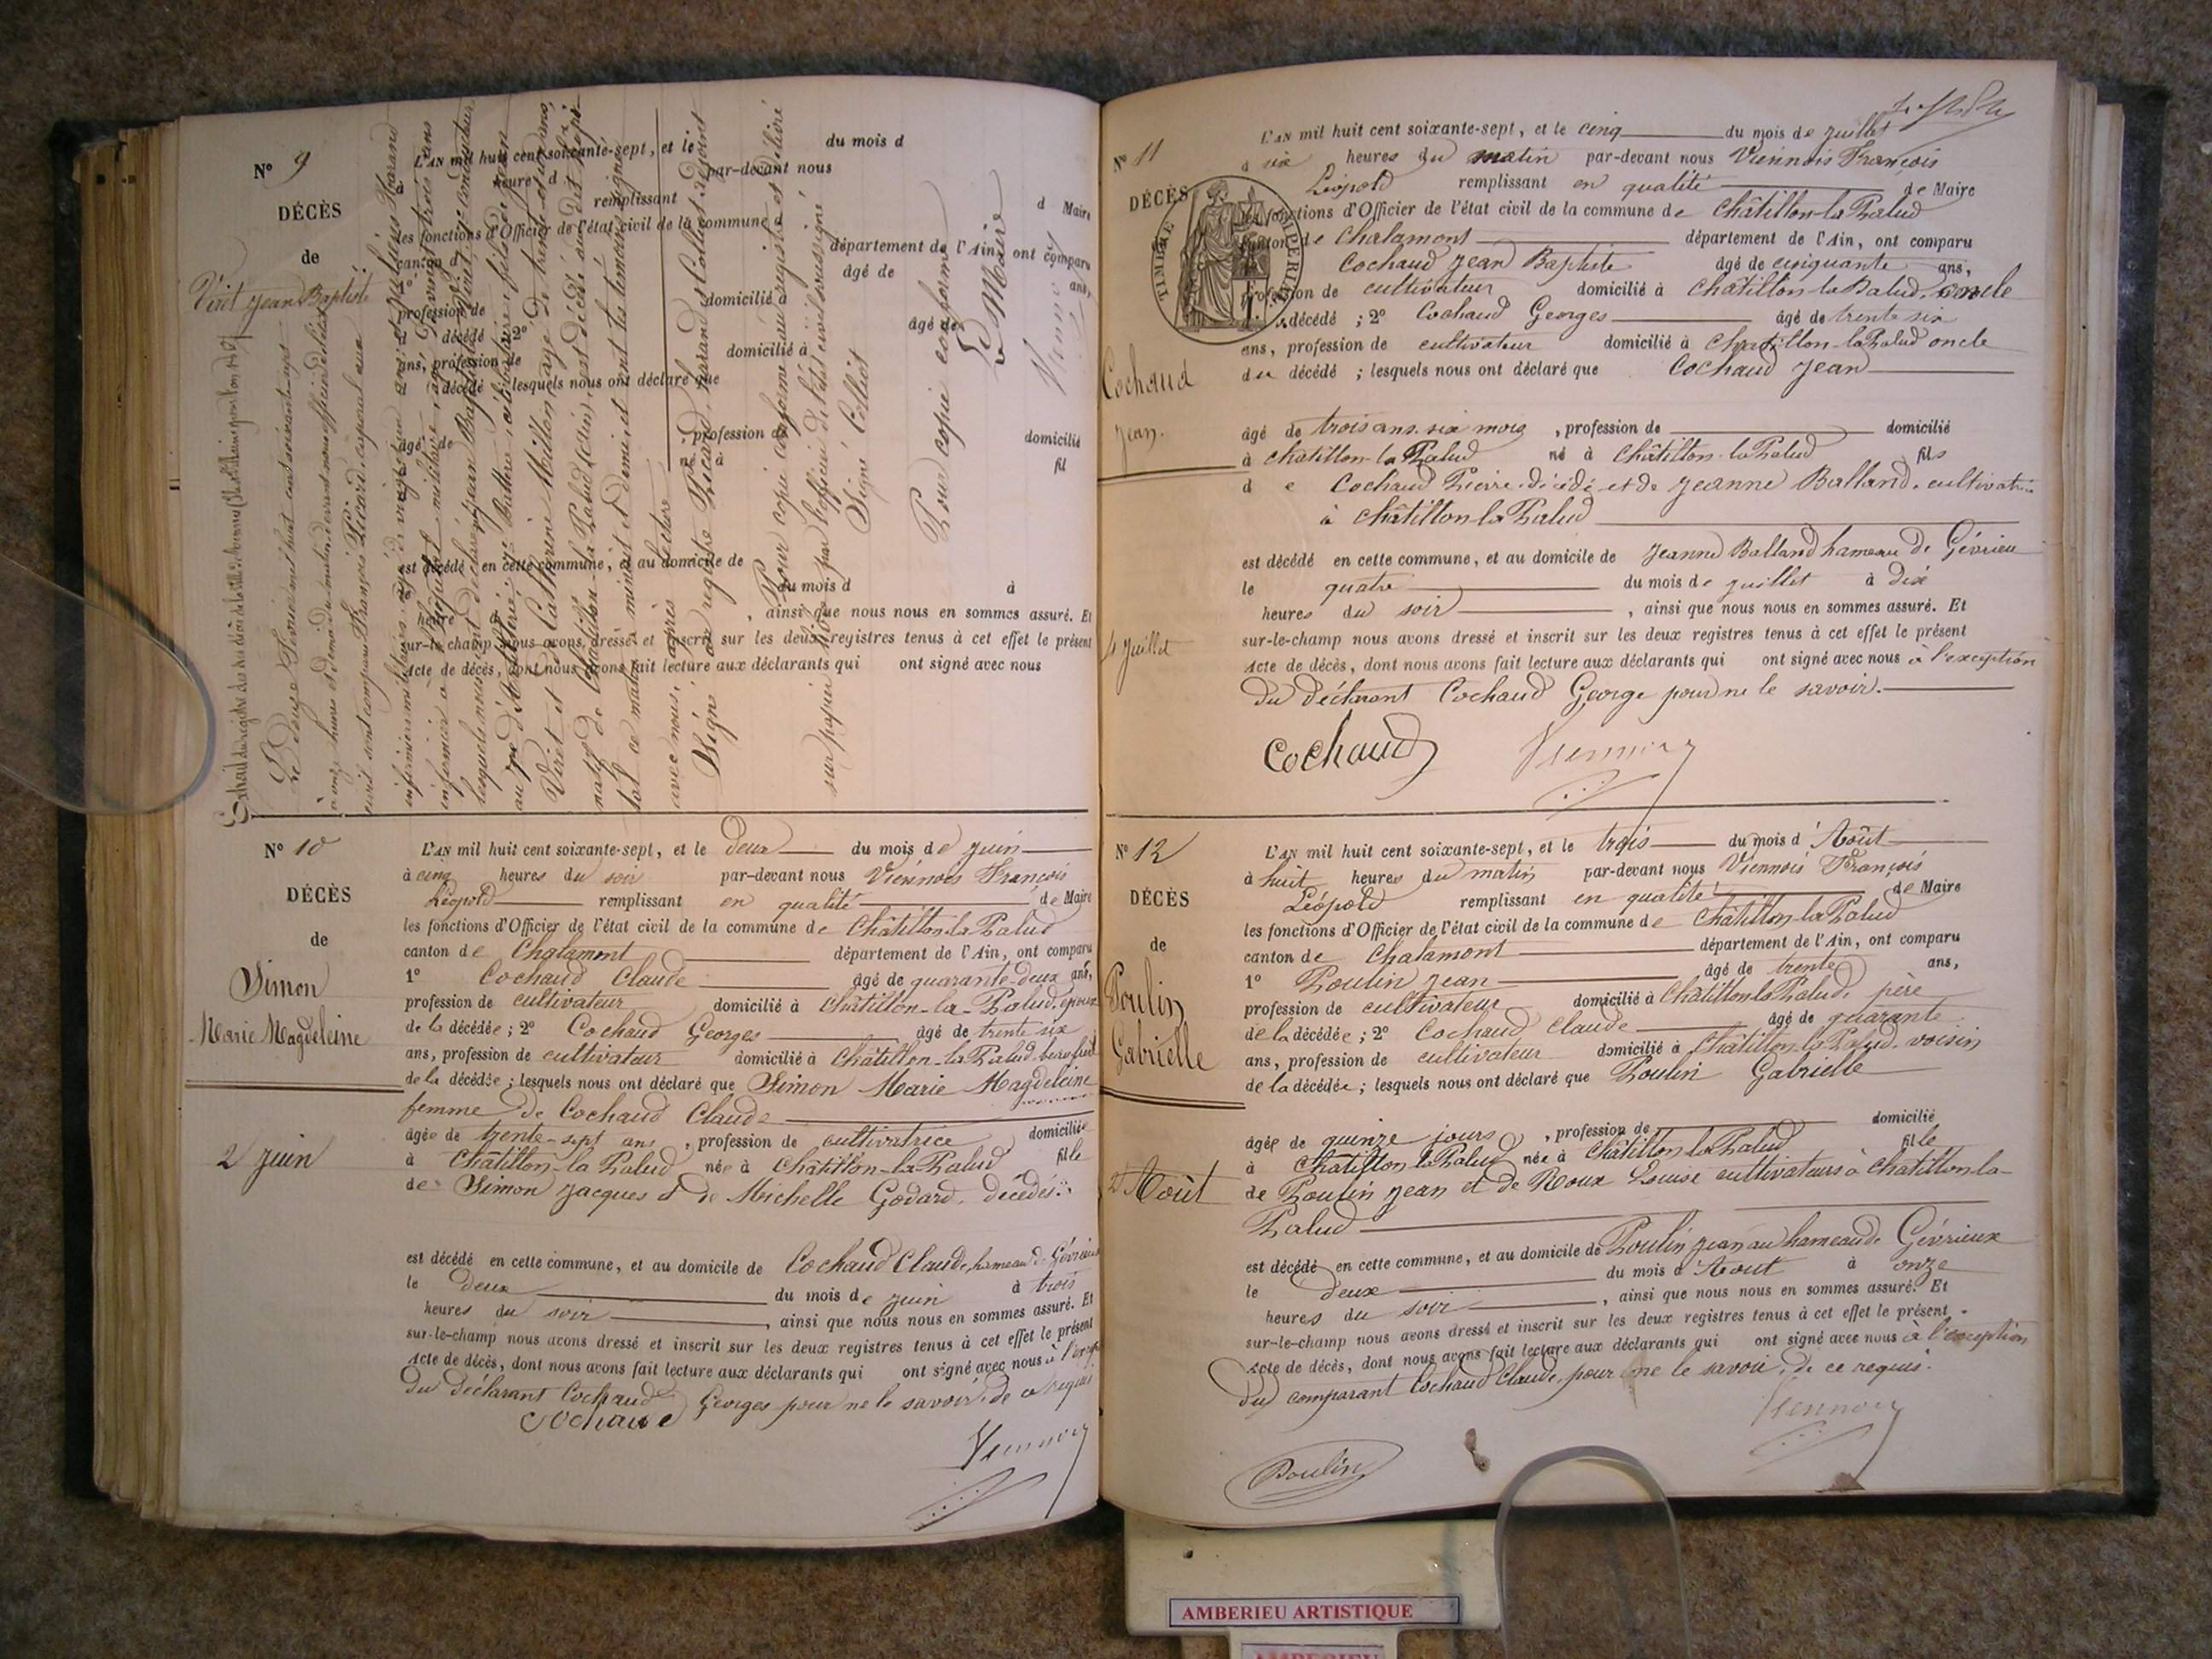 N° 9
DÉCÈS
de
Viret Jean Baptiste
L'AN mil huit cent soixante-sept, et le du mois d
heure d par-devant nous
remplissant d Maire
les fonctions d'Officier de l'état civil de la commune
canton d département de l'Ain, ont comparu
âgé de ans,
profession de domicilié à
décédé ; 2° âgé de
ans, profession de domicilié à
décédé ; lesquels nous ont déclaré que
âgé de , profession de domicilié
né à fil
est décédé en cette commune, et au domicile de
du mois d à
heure , ainsi que nous nous en sommes assuré. Et
sur-le-champ nous avons dressé et inscrit sur les deux registres tenus à cet effet le présent
Acte de décès, dont nous avons fait lecture aux déclarants qui ont signé avec nous
Le deux Juin mil huit cent soixante-sept
à onze heures et demie du matin, devant nous officier de l'état
civil sont comparus François Ricard, caporal aux
lesquels nous ont déclaré que Jean Baptiste
Viret et de Catherine Millon, âgé de trente-et-un ans,
natif de Châtillon-la-Palud (Ain), est décédé au dit
avec nous, après lecture
Signé au registre Ricard, Marand et Colliot adjoint
Pour copie conforme au registre et délivré
sur papier libre par l'officier de l'état civil soussigné
Signé Colliot
Pour copie conforme
Le Maire
N° 10
DÉCÈS
de
Simon
Marie Magdeleine
2 Juin
L'AN mil huit cent soixante-sept, et le deux du mois de Juin
à cinq heures du soir par-devant nous Viennois François
Léopold remplissant en qualité de Maire
les fonctions d'Officier de l'état civil de la commune de Châtillon-la-Palud
canton de Chalamont département de l'Ain, ont comparu
1° Cochaud Claude âgé de quarante-deux ans,
profession de cultivateur domicilié à Châtillon-la-Palud, époux
de la décédée ; 2° Cochaud Georges âgé de trente six
ans, profession de cultivateur domicilié à Châtillon-la-Palud, beau frère
de la décédée ; lesquels nous ont déclaré que Simon Marie Magdeleine
femme de Cochaud Claude
âgée de trente-sept ans , profession de cultivatrice domiciliée
à Châtillon-la Palud née à Châtillon-la-Palud fille
de Simon Jacques & de Michelle Godard, décédés
est décédé en cette commune, et au domicile de Cochaud Claude, hameau de Gévrieux
le deux du mois de juin à trois
heures du soir , ainsi que nous nous en sommes assuré. Et
sur-le-champ nous avons dressé et inscrit sur les deux registres tenus à cet effet le présent
Acte de décès, dont nous avons fait lecture aux déclarants qui ont signé avec nous à l'excep
du déclarant Cochaud Georges pour ne le savoir, de ce requis
Cochaud
Viennois
N° 11
DÉCÈS
Cochaud
Jean.
4 Juillet
TIMBRE IMPERIAL
L'AN mil huit cent soixante-sept, et le cinq du mois de Juillet
à six heures du matin par-devant nous Viennois François
Léopold remplissant en qualité de Maire
les fonctions d'Officier de l'état civil de la commune de Châtillon-la Palud
canton de Chalamont département de l'Ain, ont comparu
Cochaud Jean Baptiste âgé de cinquante ans,
profession de cultivateur domicilié à Châtillon-la Palud, oncle
décédé ; 2° Cochaud Georges âgé de trente six
ans, profession de cultivateur domicilié à Châtillon-la Palud oncle
du décédé ; lesquels nous ont déclaré que Cochaud Jean
âgé de trois ans six mois , profession de domicilié
à Châtillon-la Palud né à Châtillon-la Palud fils
de Cochaud Pierre décédé et de Jeanne Balland, cultivatrice
à Châtillon-la Palud
est décédé en cette commune, et au domicile de Jeanne Balland hameau de Gévrieu
le quatre du mois de juillet à dix
heures du soir , ainsi que nous nous en sommes assuré. Et
sur-le-champ nous avons dressé et inscrit sur les deux registres tenus à cet effet le présent
Acte de décès, dont nous avons fait lecture aux déclarants qui ont signé avec nous à l'exception
du déclarant Cochaud George pour ne le savoir.
Cochaud Viennois
N° 12
DÉCÈS
de
Poulin
Gabrielle
2 Août
L'AN mil huit cent soixante-sept, et le trois du mois d'Août
à huit heures du matin par-devant nous Viennois François
Léopold remplissant en qualité de Maire
les fonctions d'Officier de l'état civil de la commune de Châtillon la Palud
canton de Chalamont département de l'Ain, ont comparu
1° Poulin Jean âgé de trente ans,
profession de cultivateur domicilié à Châtillon la Palud, père
de la décédée ; 2° Cochaud Claude âgé de quarante
ans, profession de cultivateur domicilié à Châtillon-la Palud, voisin
de la décédée ; lesquels nous ont déclaré que Poulin Gabrielle
âgée de quinze jours , profession de domicilié
à Châtillon la Palud née à Châtillon la Palud fille
de Poulin Jean et de Roux Louise cultivateurs à Châtillon-la-
Palud
est décédé en cette commune, et au domicile de Poulin Jean au hameau de Gévrieux
le deux du mois d'Août à onze
heures du soir , ainsi que nous nous en sommes assuré. Et
sur-le-champ nous avons dressé et inscrit sur les deux registres tenus à cet effet le présent
Acte de décès, dont nous avons fait lecture aux déclarants qui ont signé avec nous à l'exception
du comparant Cochaud Claude, pour ne le savoir, de ce requis.
Viennois
Poulin
AMBERIEU ARTISTIQUE
AMBERIEU